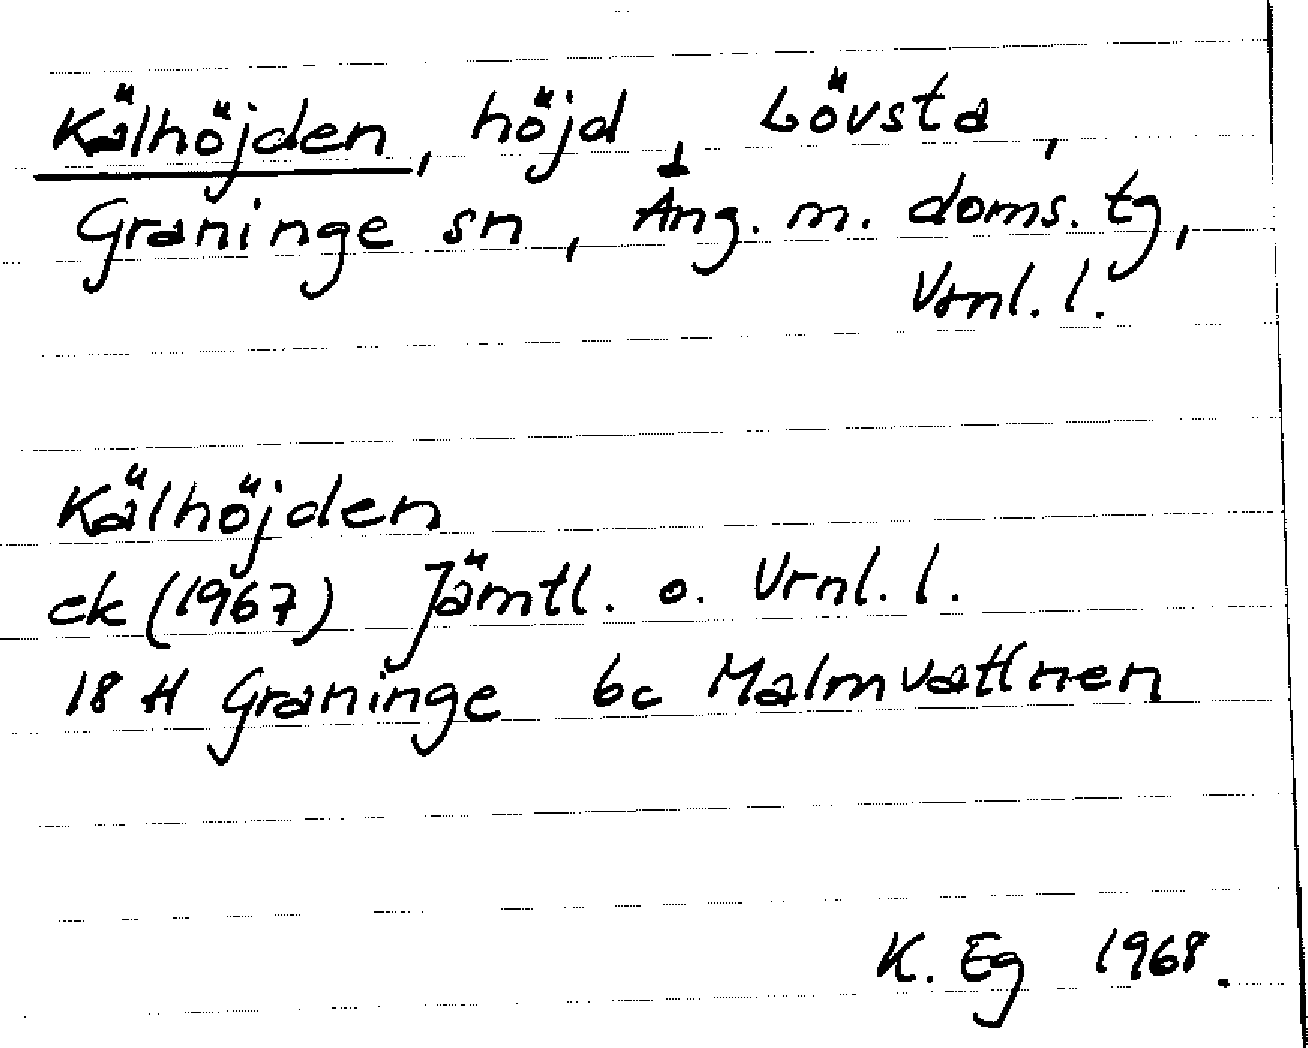 Kälhöjden, höjd ⊥ Lövsta,
Graninge sn, Ång. m. doms. tg,
Vrnl. l.
Kälhöjden
ek (1967) Jämtl. o. Vrnl. l.
18 H Graninge 6c Malmvattnen
K. Eg 1968.